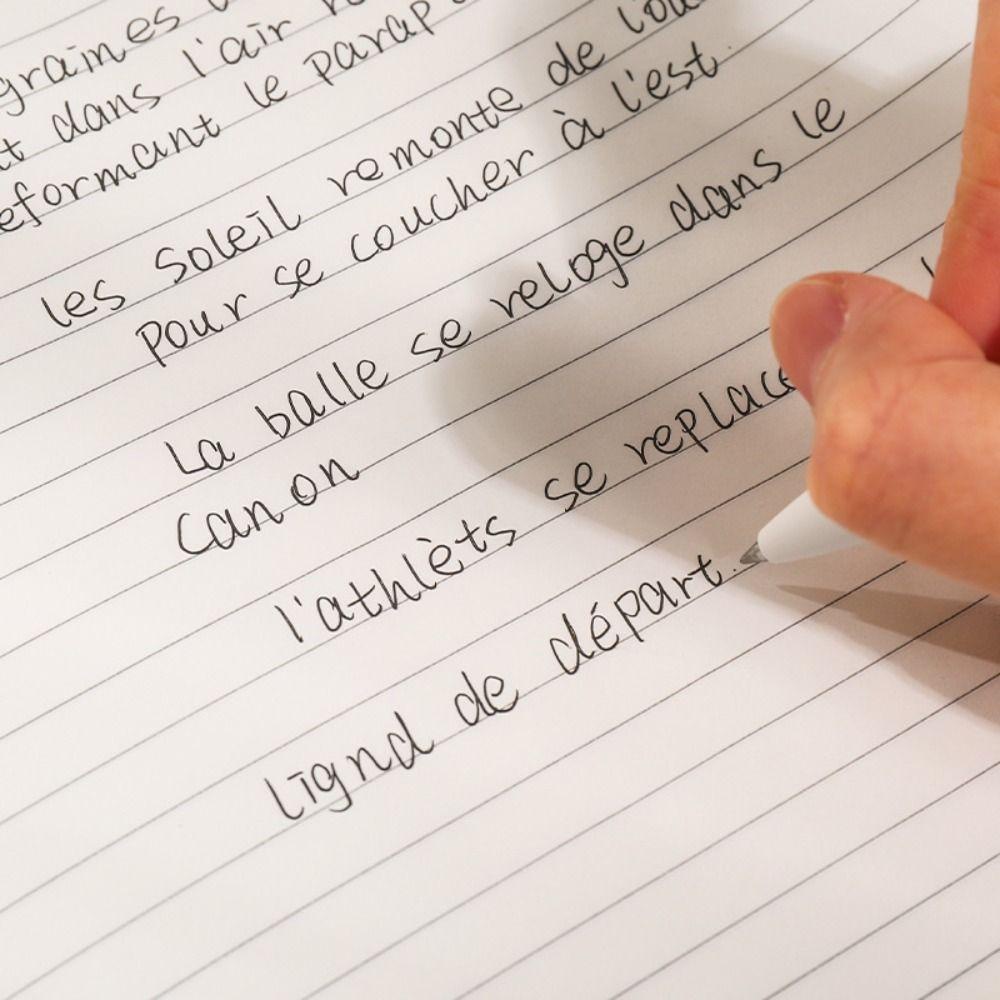 graines
dans l'air
le parap
les soleil remonte de
pour se coucher à l'est.
La balle se reloge dans le
canon
l'athlèts se replace
lignd de départ.